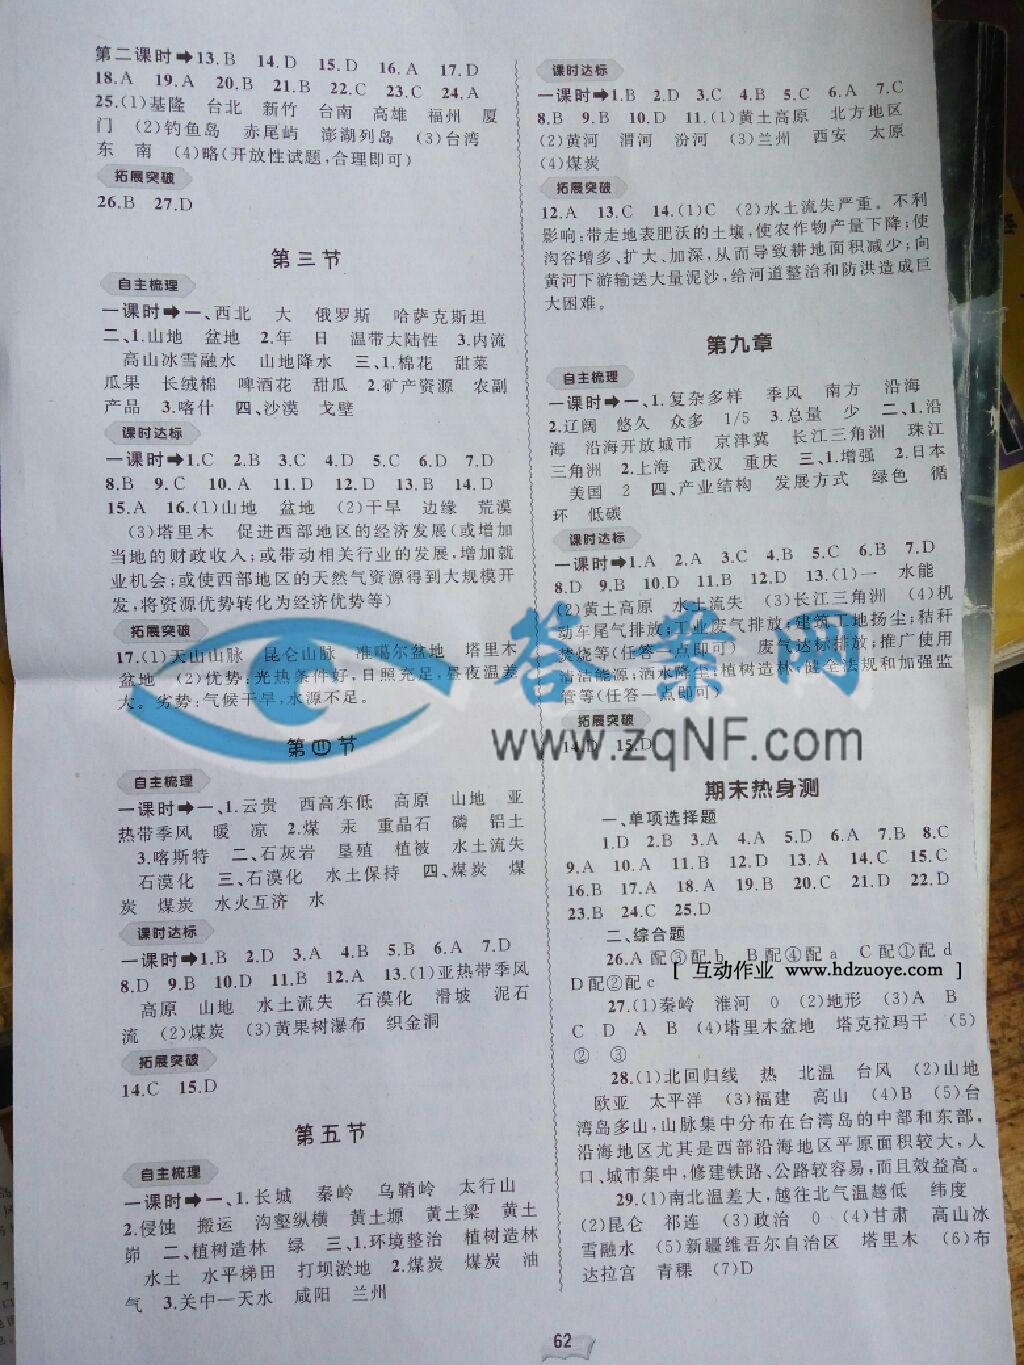 第二课时➡13.B 14.D 15.D 16.A 17.D
18.A 19.A 20.B 21.B 22.C 23.C 24.A
25.(1)基隆 台北 新竹 台南 高雄 福州 厦
门 (2)钓鱼岛 赤尾屿 澎湖列岛 (3)台湾
东 南 (4)略(开放性试题,合理即可)
拓展突破
26.B 27.D
第三节
自主梳理
一课时➡一、西北 大 俄罗斯 哈萨克斯坦
二、1.山地 盆地 2.年 日 温带大陆性 3.内流
高山冰雪融水 山地降水 三、1.棉花 甜菜
瓜果 长绒棉 啤酒花 甜瓜 2.矿产资源 农副
产品 3.喀什 四、沙漠 戈壁
课时达标
一课时➡1.C 2.B 3.C 4.D 5.C 6.D 7.D
8.B 9.C 10.A 11.D 12.D 13.B 14.D
15.A 16.(1)山地 盆地 (2)干旱 边缘 荒漠
(3)塔里木 促进西部地区的经济发展(或增加
当地的财政收入;或带动相关行业的发展,增加就
业机会;或使西部地区的天然气资源得到大规模开
发,将资源优势转化为经济优势等)
拓展突破
17.(1)天山山脉 昆仑山脉 准噶尔盆地 塔里木
盆地 (2)优势:光热条件好,日照充足,昼夜温差
大。劣势:气候干旱,水源不足。
第四节
自主梳理
一课时➡一、1.云贵 西高东低 高原 山地 亚
热带季风 暖 凉 2.煤 汞 重晶石 磷 铝土
3.喀斯特 二、石灰岩 垦殖 植被 水土流失
石漠化 三、石漠化 水土保持 四、煤炭 煤
炭 煤炭 水火互济 水
课时达标
一课时➡1.B 2.D 3.A 4.B 5.B 6.A 7.D
8.D 9.B 10.D 11.A 12.A 13.(1)亚热带季风
高原 山地 水土流失 石漠化 滑坡 泥石
流 (2)煤炭 (3)黄果树瀑布 织金洞
拓展突破
14.C 15.D
第五节
自主梳理
一课时➡一、1.长城 秦岭 乌鞘岭 太行山
2.侵蚀 搬运 沟壑纵横 黄土塬 黄土梁 黄土
峁 二、植树造林 绿 三、1.环境整治 植树造林
水土 水平梯田 打坝淤地 2.煤炭 煤炭 油
气 3.关中—天水 咸阳 兰州
课时达标
一课时➡1.B 2.D 3.C 4.B 5.C 6.A 7.C
8.B 9.B 10.D 11.(1)黄土高原 北方地区
(2)黄河 渭河 汾河 (3)兰州 西安 太原
(4)煤炭
拓展突破
12.A 13.C 14.(1)C (2)水土流失严重。不利
影响:带走地表肥沃的土壤,使农作物产量下降;使
沟谷增多、扩大、加深,从而导致耕地面积减少;向
黄河下游输送大量泥沙,给河道整治和防洪造成巨
大困难。
第九章
自主梳理
一课时➡一、1.复杂多样 季风 南方 沿海
2.辽阔 悠久 众多 1/5 3.总量 少 二、1.沿
海 沿海开放城市 京津冀 长江三角洲 珠江
三角洲 2.上海 武汉 重庆 三、1.增强 2.日本
美国 2 四、产业结构 发展方式 绿色 循
环 低碳
课时达标
一课时➡1.A 2.A 3.C 4.B 5.C 6.B 7.D
8.D 9.B 10.D 11.B 12.D 13.(1)一 水能
(2)黄土高原 水土流失 (3)长江三角洲 (4)机
动车尾气排放;工业废气排放;建筑工地扬尘;秸秆
焚烧等(任答一点即可) 废气达标排放;推广使用
清洁能源;洒水降尘;植树造林;健全法规和加强监
管等(任答一点即可)
拓展突破
14.D 15.D
答案网
www.zqNF.com
期末热身测
一、单项选择题
1.D 2.B 3.A 4.A 5.D 6.A 7.B 8.C
9.A 10.A 11.B 12.D 13.A 14.C 15.C
16.B 17.A 18.A 19.B 20.C 21.D 22.D
23.B 24.C 25.D
二、综合题
26.A配③配b B配④配a C配①配d
D配②配c
[ 互动作业 www.hdzuoye.com ]
27.(1)秦岭 淮河 0 (2)地形 (3)A B
C D A B (4)塔里木盆地 塔克拉玛干 (5)
② ③
28.(1)北回归线 热 北温 台风 (2)山地
欧亚 太平洋 (3)福建 高山 (4)B (5)台
湾岛多山,山脉集中分布在台湾岛的中部和东部,
沿海地区尤其是西部沿海地区平原面积较大,人
口、城市集中,修建铁路、公路较容易,而且效益高。
29.(1)南北温差大,越往北气温越低 纬度
(2)昆仑 祁连 (3)政治 0 (4)甘肃 高山冰
雪融水 (5)新疆维吾尔自治区 塔里木 (6)布
达拉宫 青稞 (7)D
62